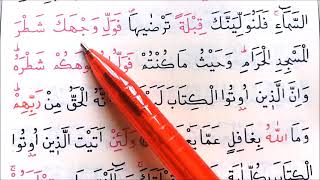 السَّمَٓاءِۚ فَلَنُوَلِّيَنَّكَ قِبْلَةً تَرْضٰيهَاۖ فَوَلِّ وَجْهَكَ شَطْرَ
الْمَسْجِدِ الْحَرَامِۜ وَحَيْثُ مَا كُنْتُمْ وُجُوهَكُمْ شَطْرَهُۜ
وَاِنَّ الَّذ۪ينَ اُو۫تُوا الْكِتَابَ الْحَقُّ مِنْ رَبِّهِمْۜ
وَمَا اللّٰهُ بِغَافِلٍ عَمَّا وَلَئِنْ اَتَيْتَ الَّذ۪ينَ اُو۫تُوا
الْكِتَابَ بِكُلِّ اٰيَةٍ